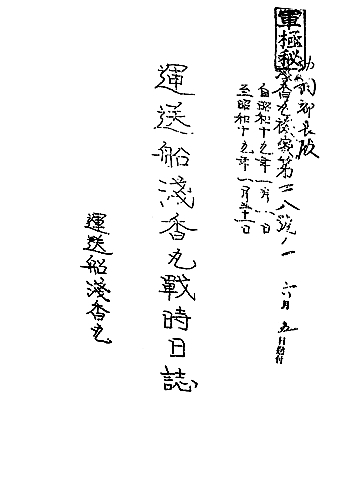 軍極秘
淺香丸機密第二八號ノ一
自昭和十九年一月一日
至昭和十九年一月三十一日
運送船淺香丸戰時日誌
運送船淺香丸